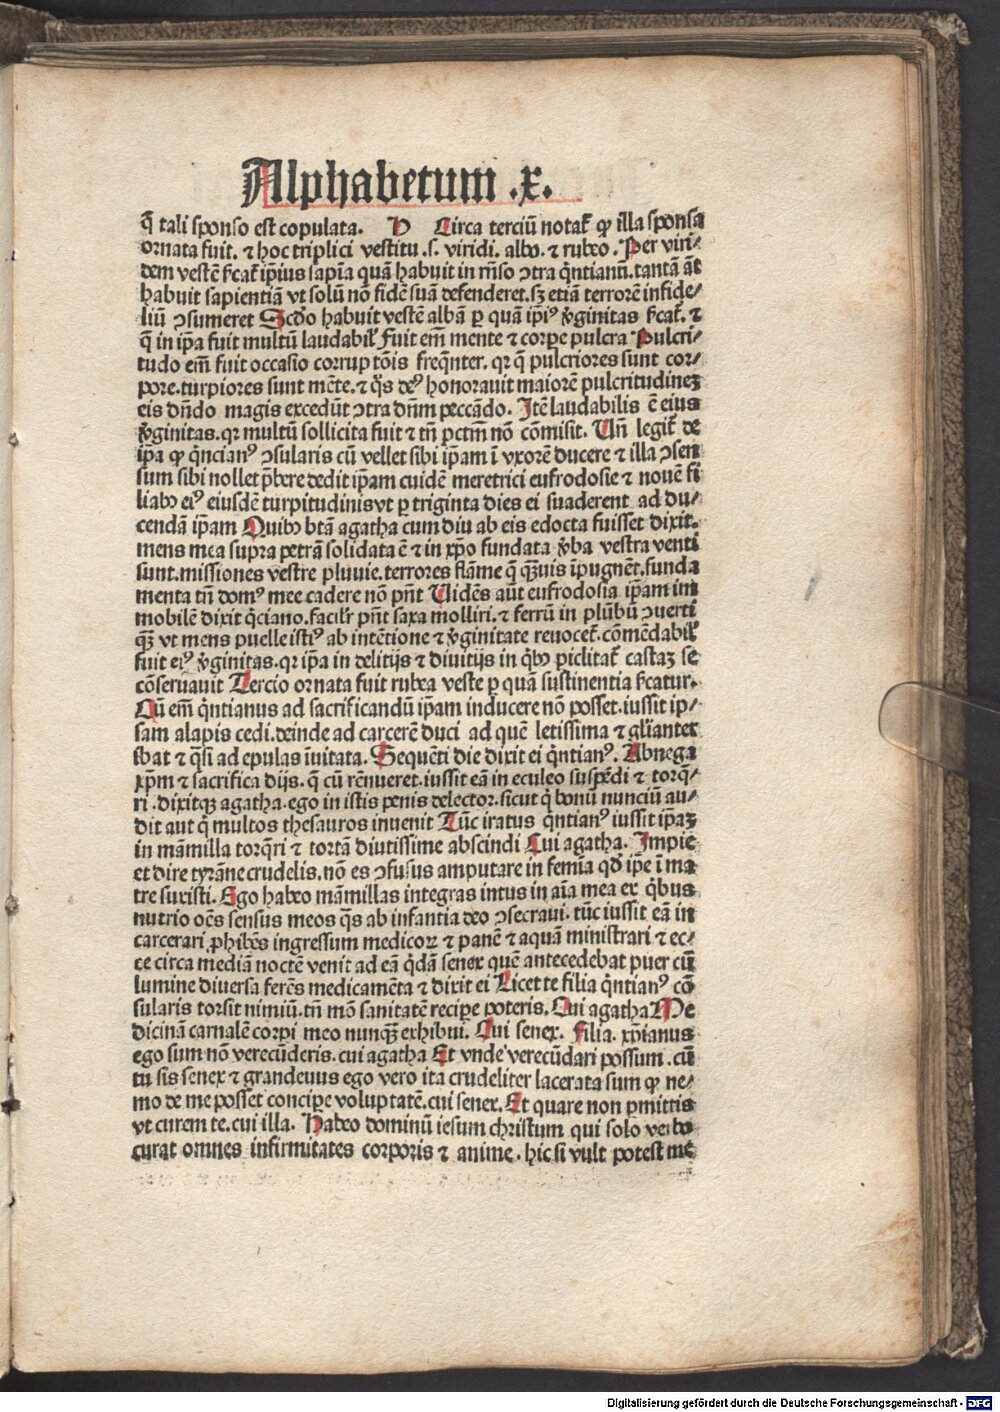 Alphabetum .x.
q̄ tali sponso est copulata. D Circa terciū notat᷑ ꝙ illa sponsa
ornata fuit. ⁊ hoc triplici vestitu .s. viridi. albo. ⁊ rubeo. Per viri⸗
dem vestē st̄cat᷑ ip̄ius sapīa quā habuit in rn̄so ꝯtra q̄ntianū. tantā āt
habuit sapientiā vt solū nō fidē suā defenderet. sꝫ etiā terrorē infide⸗
liū ꝯsumeret Scd̓o habuit vestē albā ꝑ quā ip̄iꝰ v̓ginitas st̄cat᷑. ⁊
q̄ in ip̄a fuit multū laudabil̓ Fuit em̄ mente ⁊ corꝑe pulcra Pulcri⸗
tudo em̄ fuit occasio corruptōis freq̄nter. qꝛ q̄ pulcriores sunt cor⸗
pore. turpiores sunt mēte. ⁊ q̄s deꝰ honorauit maiorē pulcritudineꝫ
eis dn̄do magis excedūt ꝯtra dn̄m peccādo. Itē laudabilis ē eius
v̓ginitas. qꝛ multū sollicita fuit ⁊ tn̄ pctm̄ nō cōmisit. Un̄ legit᷑ de
ip̄a ꝙ q̄ncianꝰ ꝯsularis cū vellet sibi ip̄am ī vxorē ducere ⁊ illa ꝯsen
sum sibi nollet p̄bere dedit ip̄am cuidē meretrici eufrodosie ⁊ nouē fi
liabꝰ eiꝰ eiusdē turpitudinis vt ꝑ triginta dies ei suaderent ad du⸗
cendā ip̄am Quibꝰ btā agatha cum diu ab eis edocta fuisset dixit.
mens mea supra petrā solidata ē ⁊ in xp̄o fundata v̓ba vestra venti
sunt. missiones vestre pluuie. terrores flāme q̄ q̄ꝫuis īpugnēt. funda
menta tn̄ domꝰ mee cadere nō pn̄t Uidēs aūt eufrodosia ip̄am im
mobilē dixit q̄ciano. facil̓r pn̄t saxa molliri. ⁊ ferrū in plūbū ꝯuerti
q̄ꝫ vt mens puelle istiꝰ ab intētione ⁊ v̓ginitate reuocet᷑. cōmēdabil̓
fuit eiꝰ v̓ginitas. qꝛ ip̄a in delitijs ⁊ diuitijs in q̄bꝰ ꝑiclitat᷑ castaꝫ se
cōseruauit Tercio ornata fuit rubea veste ꝑ quā sustinentia st̄catur.
Cū em̄ q̄ntianus ad sacrificandū ip̄am inducere nō posset. iussit ip⸗
sam alapis cedi. deinde ad carcerē duci ad quē letissima ⁊ gl̓ianter
ibat ⁊ q̄si ad epulas īuitata. Sequēti die dixit ei q̄ntianꝰ. Abnega
xp̄m ⁊ sacrifica dijs. q̄ cū rēnueret. iussit eā in eculeo suspēdi ⁊ torq̄⸗
ri. dixitqꝫ agatha. ego in istis penis delector. sicut q̄ bonū nunciū au⸗
dit aut q̄ multos thesauros inuenit Tūc iratus q̄ntianꝰ iussit ip̄aꝫ
in māmilla torq̄ri ⁊ tortā diutissime abscindi Cui agatha. Impie
et dire tyrāne crudelis. nō es ꝯfusus amputare in femīa qd̓ ip̄e ī ma
tre suxisti. Ego habeo māmillas integras intus in aīa mea ex q̄bus
nutrio oēs sensus meos q̄s ab infantia deo ꝯsecraui. tūc iussit eā in
carcerari ꝓhibēs ingressum medicoꝝ ⁊ panē ⁊ aquā ministrari ⁊ ec⸗
ce circa mediā noctē venit ad eā q̄dā senex quē antecedebat puer cū
lumine diuersa ferēs medicamēta ⁊ dixit ei Licet te filia q̄ntianꝰ cō
sularis torsit nimiū. tn̄ mō sanitatē reciꝑe poteris. Cui agatha Me
dicinā carnalē corpi meo nunqꝫ exhibui. Cui senex. Filia. xp̄ianus
ego sum nō verecūderis. cui agatha Et vnde verecūdari possum. cū
tu sis senex ⁊ grandeuus ego vero ita crudeliter lacerata sum ꝙ ne⸗
mo de me posset conciꝑe voluptatē. cui senex. Et quare non ꝑmittis
vt curem te. cui illa. Habeo dominū iesum christum qui solo verbo
curat omnes infirmitates corporis ⁊ anime. hic si vult potest me
Digitalisierung gefördert durch die Deutsche Forschungsgemeinschaft - DFG